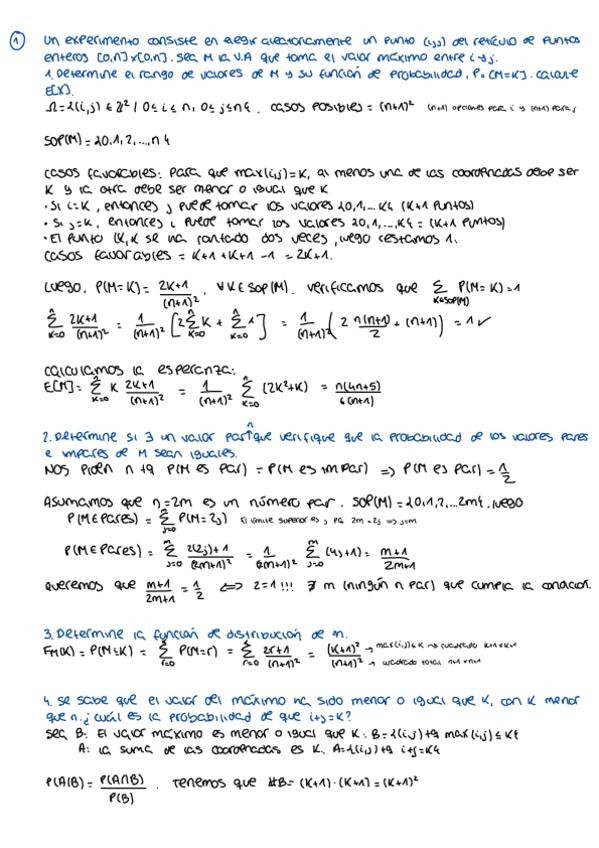 1 Un experimento consiste en elegir aleatoriamente un punto (i,j) del retículo de puntos
enteros [0,n]x[0,n]. Sea M la V.A que toma el valor máximo entre i y j.
1. Determine el rango de valores de M y su función de probabilidad, P(M=K). Calcule
E[X].
Ω={(i,j) ∈ Z² / 0≤i≤n, 0≤j≤n}. Casos posibles = (n+1)² (n+1) opciones para i y (n+1) para j
Sop(M)={0,1,2,...,n}
Casos favorables: Para que max(i,j)=K, al menos una de las coordenadas debe ser
K y la otra debe ser menor o igual que K
· Si i=K, entonces j puede tomar los valores {0,1,...K} (K+1 puntos)
· Si j=K, entonces i puede tomar los valores {0,1,...,K} = (K+1 puntos)
· El punto (K,K se ha contado dos veces, luego restamos 1.
Casos favorables = K+1+K+1-1 = 2K+1.
Luego, P(M=K) = (2K+1)/(n+1)², ∀K∈Sop(M). Verificamos que Σ_{K∈Sop(M)} P(M=K)=1
Σ_{K=0}^{n} (2K+1)/(n+1)² = 1/(n+1)² [2Σ_{K=0}^{n} K + Σ_{K=0}^{n} 1] = 1/(n+1)² (2 n(n+1)/2 + (n+1)) = 1 ✓
Calculamos la esperanza:
E[M] = Σ_{K=0}^{n} K (2K+1)/(n+1)² = 1/(n+1)² Σ_{K=0}^{n} (2K²+K) = n(4n+5)/6(n+1)
2. Determine si ∃ un valor par n que verifique que la probabilidad de los valores pares
e impares de M sean iguales.
Nos piden n tq P(M es par) = P(M es impar) => P(M es par) = 1/2
Asumamos que n=2m es un número par. Sop(M)={0,1,2,...2m}, luego
P(M∈Pares) = Σ_{j=0}^{m} P(M=2j) El límite superior es j pq 2m=2j => j=m
P(M∈Pares) = Σ_{j=0}^{m} (2(2j)+1)/(2m+1)² = 1/(2m+1)² Σ_{j=0}^{m} (4j+1) = (m+1)/(2m+1)
Queremos que (m+1)/(2m+1) = 1/2 <=> 2=1!!! ∄ m (ningún n par) que cumpla la condición.
3. Determine la función de distribución de M.
F_M(K) = P(M≤K) = Σ_{r=0}^{K} P(M=r) = Σ_{r=0}^{K} (2r+1)/(n+1)² = (K+1)²/(n+1)² → max(i,j)≤K → cuadrado K+1xK+1
→ cuadrado total n+1xn+1
4. Se sabe que el valor del máximo ha sido menor o igual que K, con K menor
que n. ¿Cuál es la probabilidad de que i+j=K?
Sea B: El valor máximo es menor o igual que K. B={(i,j) tq max(i,j)≤K}
A: la suma de las coordenadas es K. A={(i,j) tq i+j=K}
P(A|B) = P(A∩B)/P(B). Tenemos que #B=(K+1)·(K+1)=(K+1)²